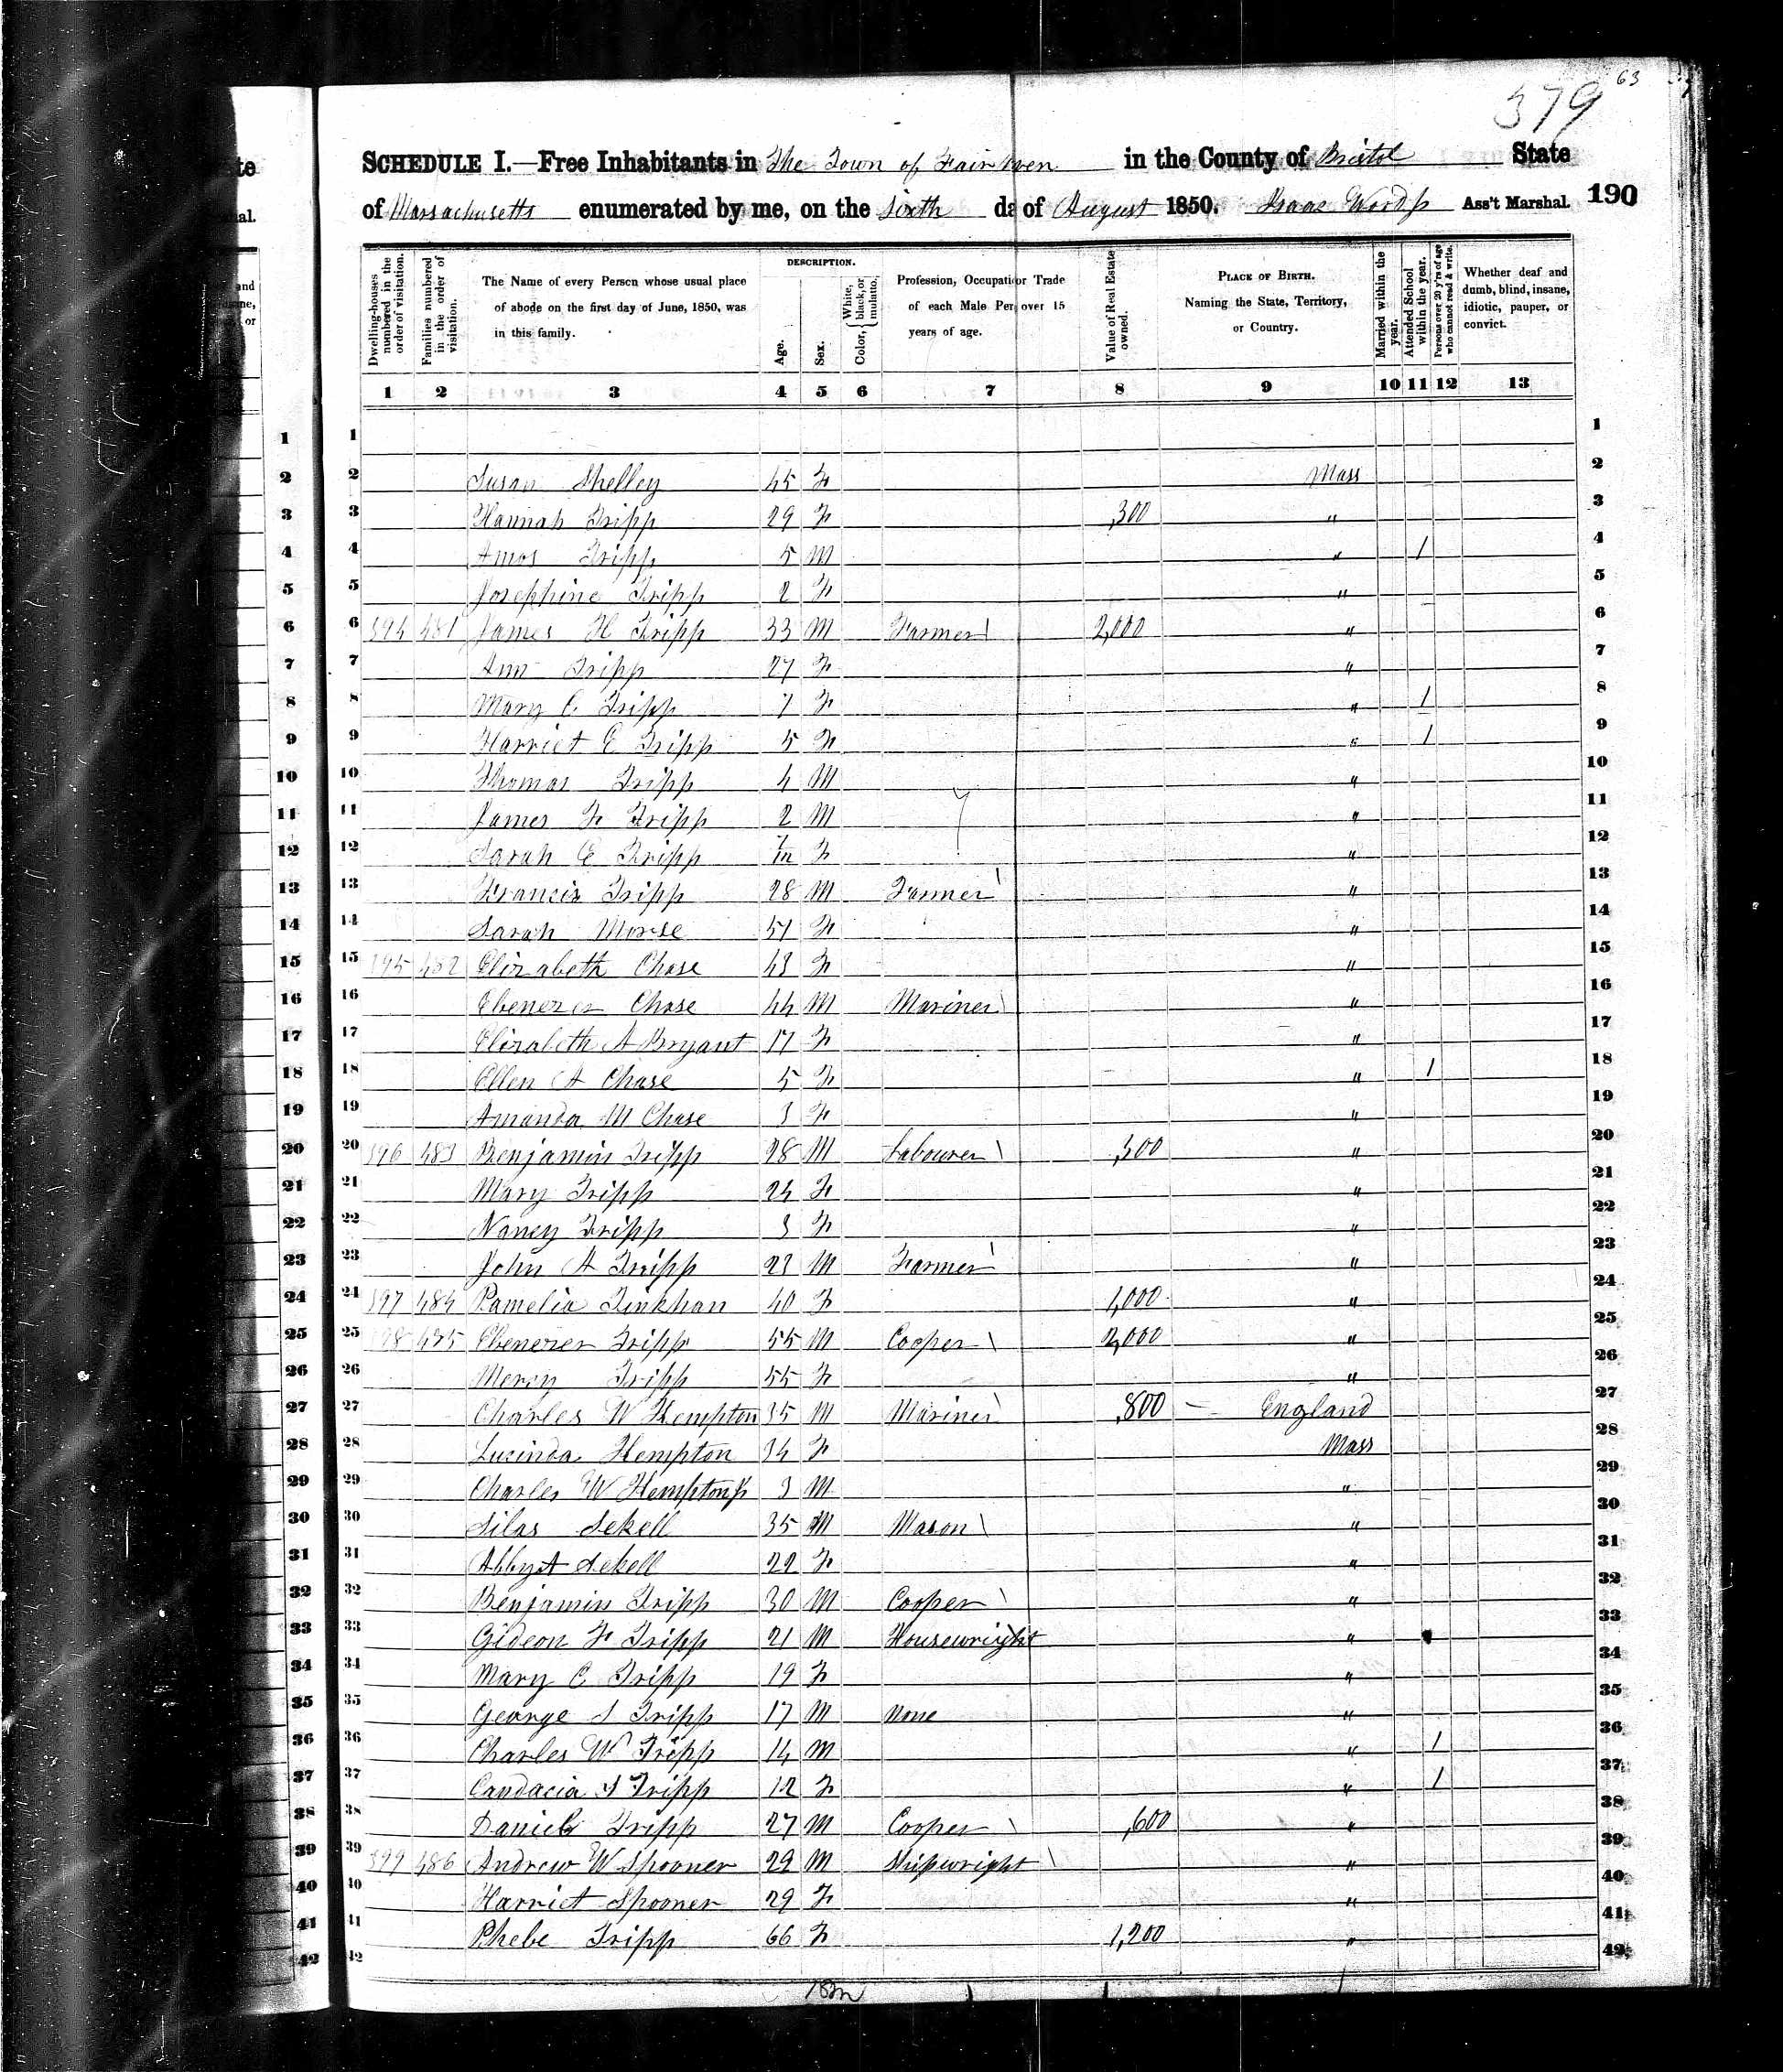 63
379
SCHEDULE I.—Free Inhabitants in The Town of Fairhaven in the County of Bristol State
of Massachusetts enumerated by me, on the Sixth da of August 1850. Isaac Wood Jr Ass't Marshal. 190
Dwelling-houses numbered in the order of visitation.
Families numbered in the order of visitation.
The Name of every Person whose usual place of abode on the first day of June, 1850, was in this family.
DESCRIPTION.
Age.
Sex.
Color, White, black, or mulatto.
Profession, Occupation Trade of each Male Per over 15 years of age.
Value of Real Estate owned.
PLACE OF BIRTH. Naming the State, Territory, or Country.
Married within the year.
Attended School within the year.
Persons over 20 y'rs of age who cannot read & write.
Whether deaf and dumb, blind, insane, idiotic, pauper, or convict.
1 2 3 4 5 6 7 8 9 10 11 12 13
1 1
2 Susan Shelley 45 F Mass 2
3 Hannah Tripp 29 F ,300 " 3
4 Amos Tripp 5 M " 1 4
5 Josephine Tripp 2 F " 5
6 394 481 James H Tripp 33 M Farmer 2,000 " 6
7 Ann Tripp 27 F " 7
8 Mary C Tripp 7 F " 1 8
9 Harriet E Tripp 5 F " 1 9
10 Thomas Tripp 4 M " 10
11 James F Tripp 2 M " 11
12 Sarah E Tripp 7/12 F " 12
13 Francis Tripp 28 M Farmer " 13
14 Sarah Morse 51 F " 14
15 395 482 Elizabeth Chase 43 F " 15
16 Ebenezer Chase 44 M Mariner " 16
17 Elizabeth A Bryant 17 F " 17
18 Ellen A Chase 5 F " 1 18
19 Amanda M Chase 3 F " 19
20 396 483 Benjamin Tripp 28 M Labourer ,300 " 20
21 Mary Tripp 24 F " 21
22 Nancy Tripp 3 F " 22
23 John A Tripp 23 M Farmer " 23
24 397 484 Pamelia Tinkhan 40 F 1,000 " 24
25 398 485 Ebenezer Tripp 55 M Cooper 2,000 " 25
26 Mercy Tripp 55 F " 26
27 Charles W Hempton 35 M Mariner ,800 England 27
28 Lucinda Hempton 34 F Mass 28
29 Charles W Hempton Jr 3 M " 29
30 Silas Sekell 35 M Mason " 30
31 Abby A Sekell 22 F " 31
32 Benjamin Tripp 30 M Cooper " 32
33 Gideon F Tripp 21 M Housewright " 33
34 Mary C Tripp 19 F " 34
35 George S Tripp 17 M None " 35
36 Charles W Tripp 14 M " 1 36
37 Candacia S Tripp 12 F " 1 37
38 Daniel Tripp 27 M Cooper ,600 " 38
39 399 486 Andrew W Spooner 29 M Shipwright " 39
40 Harriet Spooner 29 F " 40
41 Phebe Tripp 66 F 1,200 " 41
42 42